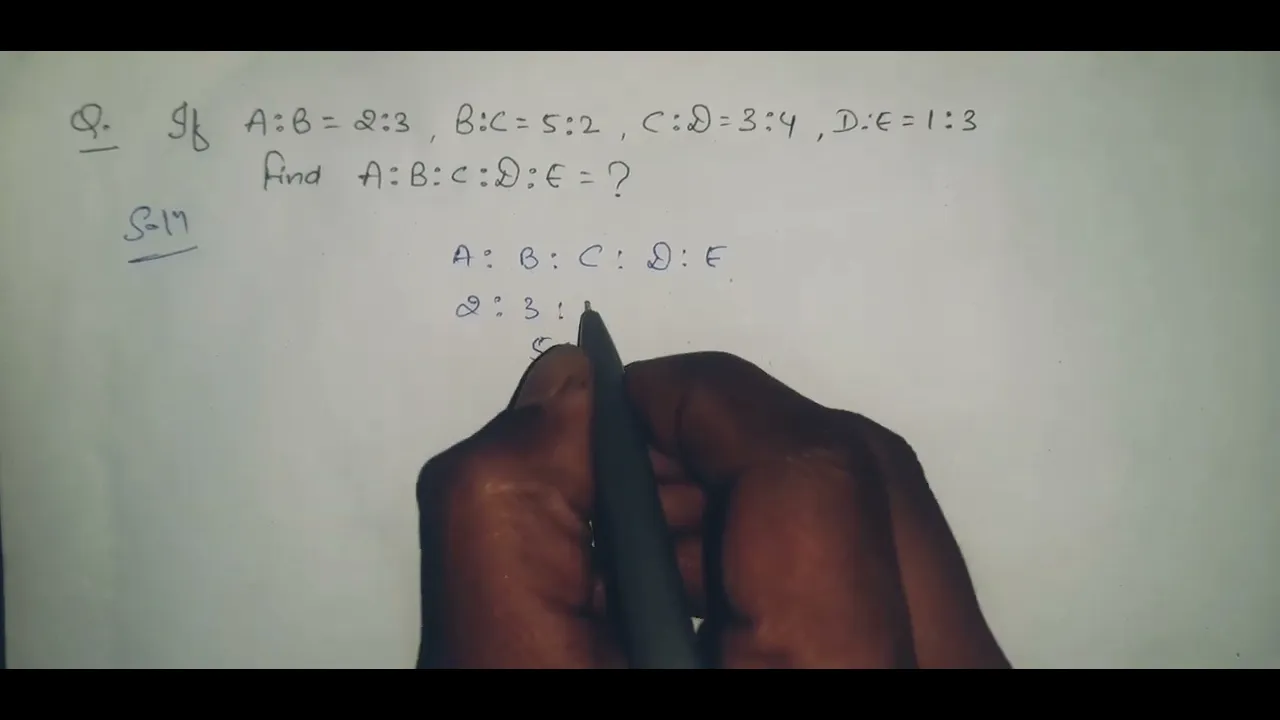 Q. If A:B = 2:3 , B:C = 5:2 , C:D = 3:4 , D:E = 1:3
find A:B:C:D:E = ?
Soln
A : B : C : D : E
2 : 3 :
5